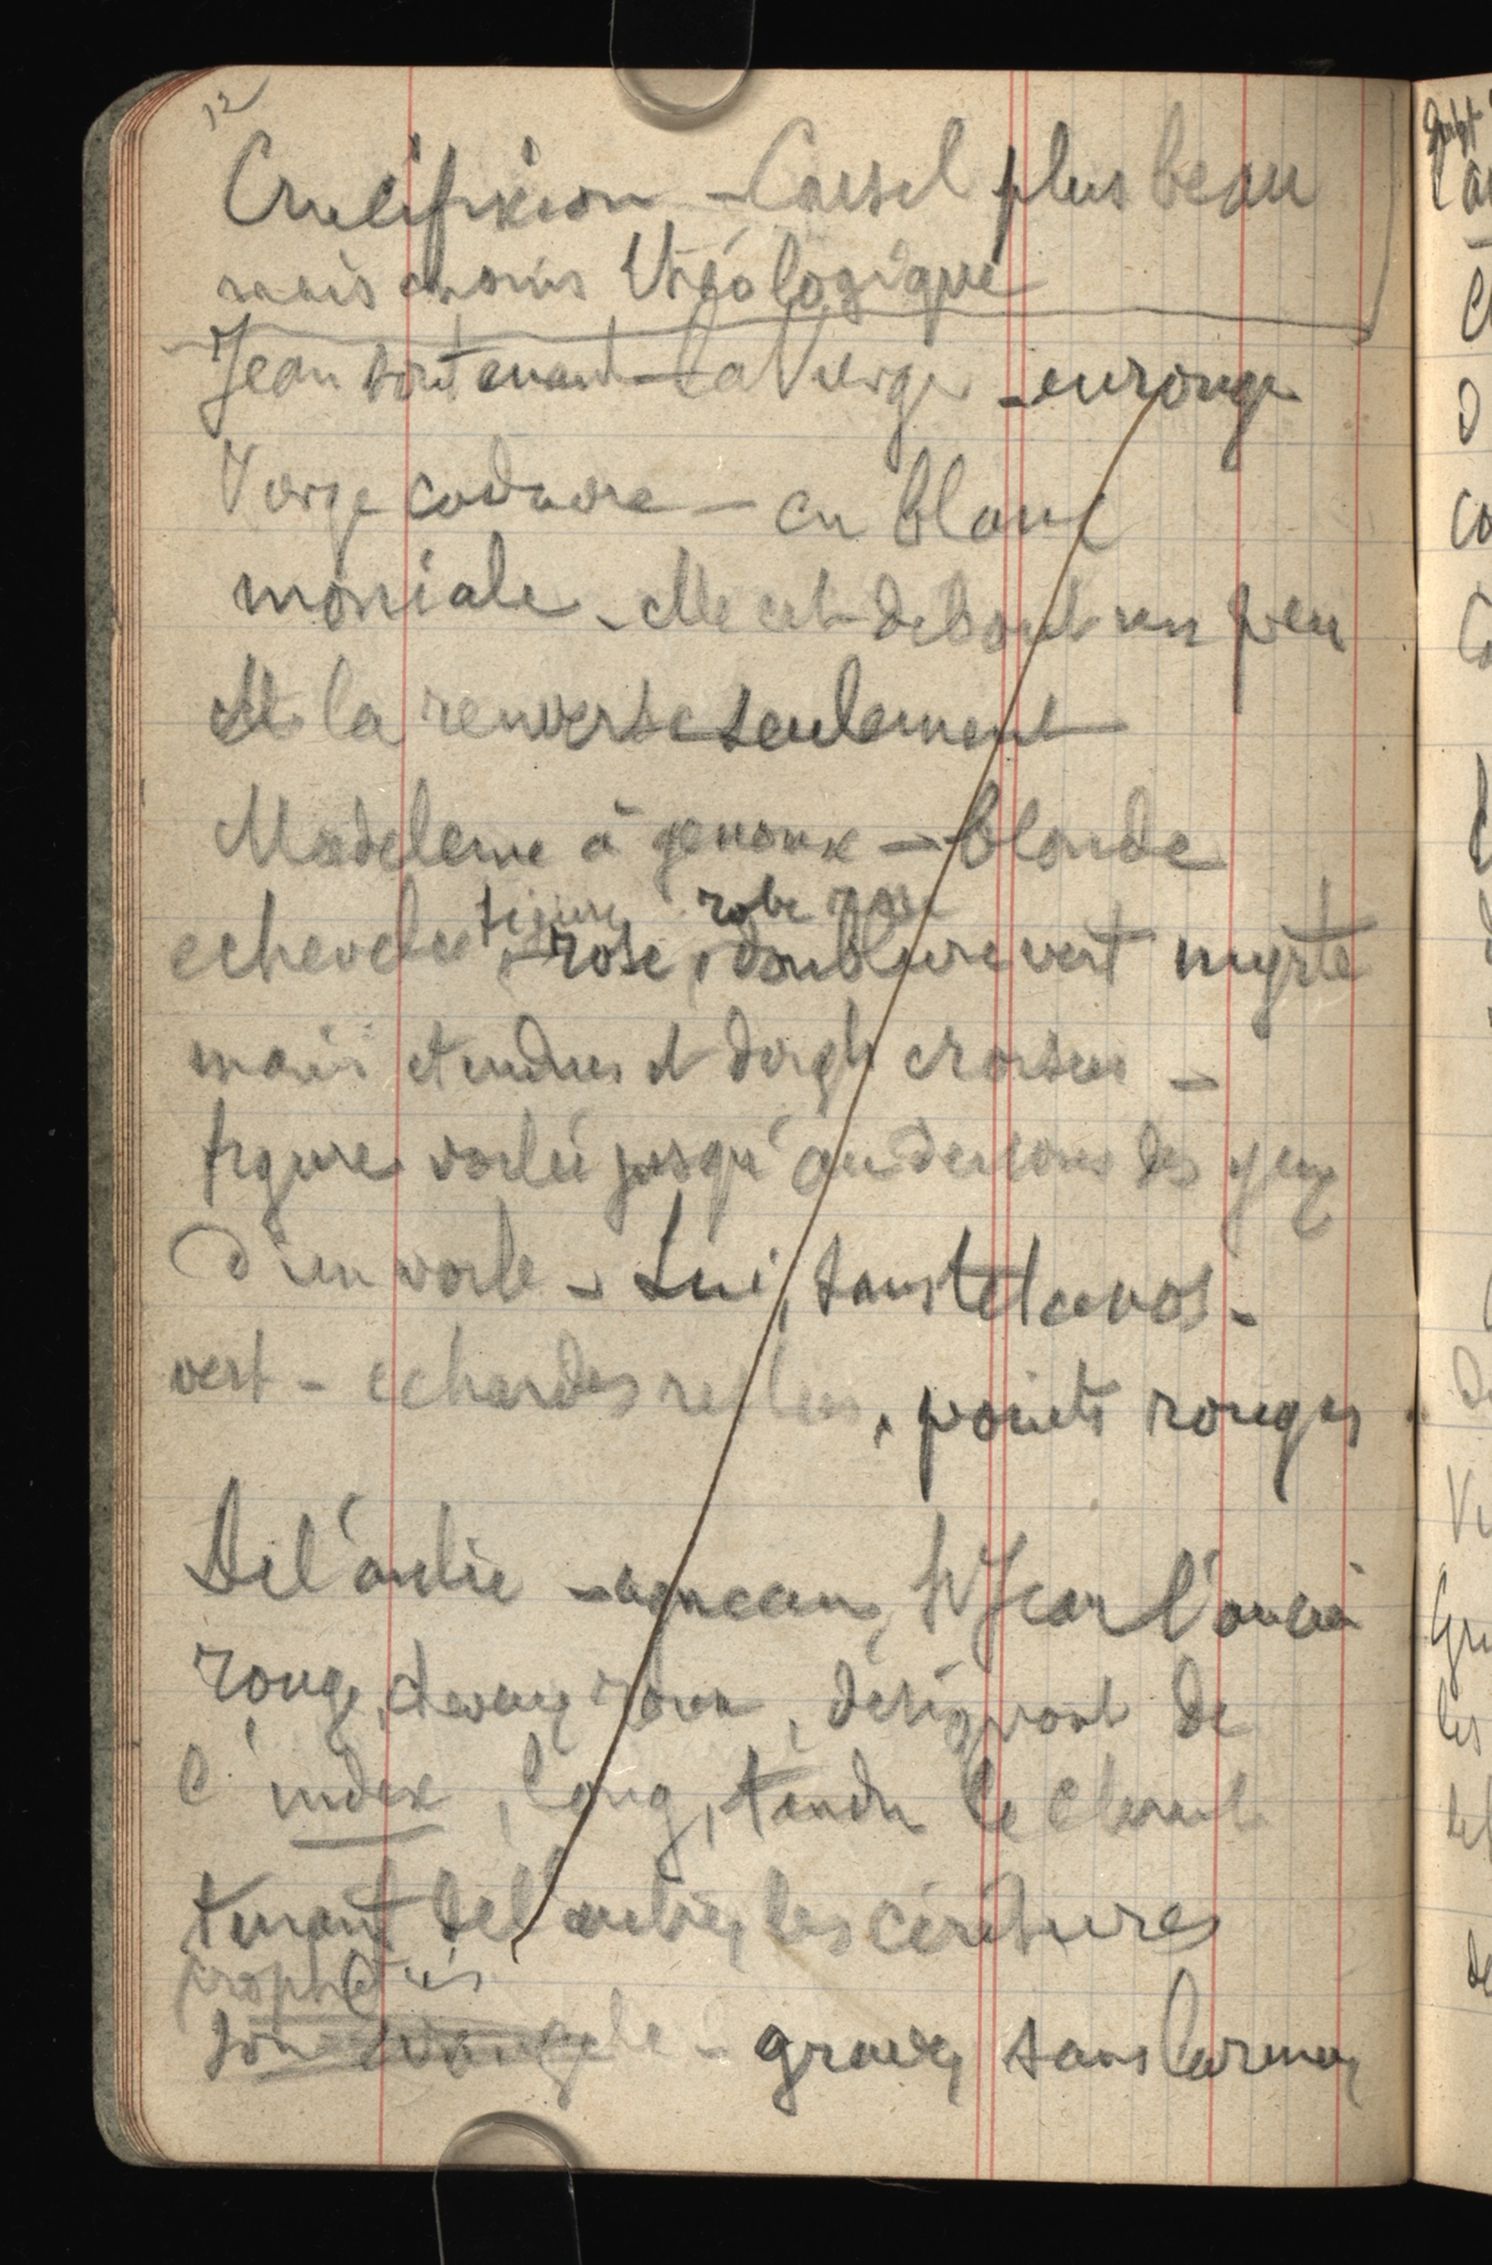 12
Crucifixion - Cassel plus beau
mais moins théologique
Jean soutenant la Vierge - en rouge
Vierge cadavre - en blanc
moniale - elle est debout un peu
à la renverse seulement
Madeleine à genoux - blonde
figure robe rose
echevelée, rose, doublure vert myrte
mains etendues et doigts croisés -
figure voilée jusqu'au dessous des yeux
d'un voile - Lui, sans tetanos -
vert - echardes restées, points rouges
De l'autre - agneau, St Jean l'ancien
rouge, cheveux roux, désignant de
l'index, long, tendu le Christ
tenant de l'autre, les écritures
prophéties
son évangile - grave, sans larmes,